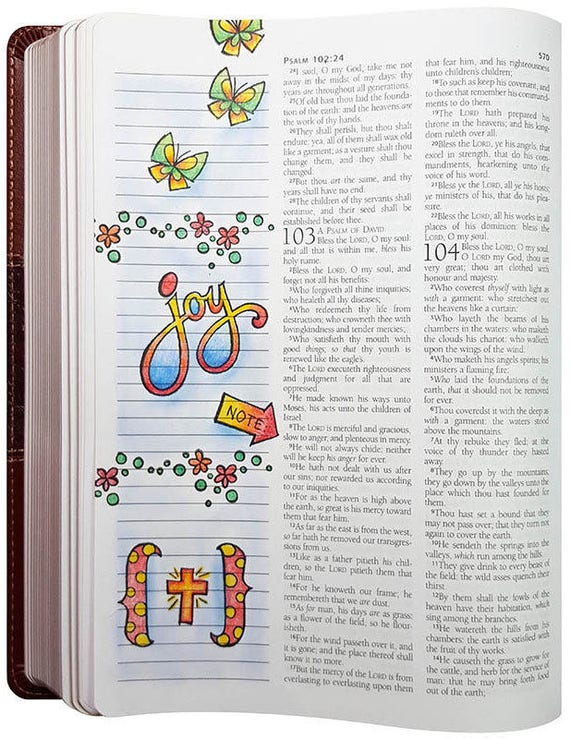 PSALM 102:24
570
joy
NOTE
24I said, O my God, take me not
away in the midst of my days: thy
years are throughout all generations.
25Of old hast thou laid the founda-
tion of the earth: and the heavens are
the work of thy hands.
26They shall perish, but thou shalt
endure: yea, all of them shall wax old
like a garment; as a vesture shalt thou
change them, and they shall be
changed:
27But thou art the same, and thy
years shall have no end.
28The children of thy servants shall
continue, and their seed shall be
established before thee.
103 A PSALM OF DAVID.
Bless the LORD, O my soul:
and all that is within me, bless his
holy name.
2Bless the LORD, O my soul, and
forget not all his benefits:
3Who forgiveth all thine iniquities;
who healeth all thy diseases;
4Who redeemeth thy life from
destruction; who crowneth thee with
lovingkindness and tender mercies;
5Who satisfieth thy mouth with
good things; so that thy youth is
renewed like the eagle's.
6The LORD executeth righteousness
and judgment for all that are
oppressed.
7He made known his ways unto
Moses, his acts unto the children of
Israel.
8The LORD is merciful and gracious,
slow to anger, and plenteous in mercy.
9He will not always chide: neither
will he keep his anger for ever.
10He hath not dealt with us after
our sins; nor rewarded us according
to our iniquities.
11For as the heaven is high above
the earth, so great is his mercy toward
them that fear him.
12As far as the east is from the west,
so far hath he removed our transgres-
sions from us.
13Like as a father pitieth his chil-
dren, so the LORD pitieth them that
fear him.
14For he knoweth our frame; he
remembereth that we are dust.
15As for man, his days are as grass:
as a flower of the field, so he flour-
isheth.
16For the wind passeth over it, and
it is gone; and the place thereof shall
know it no more.
17But the mercy of the LORD is from
everlasting to everlasting upon them
that fear him, and his righteousness
unto children's children;
18To such as keep his covenant, and
to those that remember his command-
ments to do them.
19The LORD hath prepared his
throne in the heavens; and his king-
dom ruleth over all.
20Bless the LORD, ye his angels, that
excel in strength, that do his com-
mandments, hearkening unto the
voice of his word.
21Bless ye the LORD, all ye his hosts;
ye ministers of his, that do his plea-
sure.
22Bless the LORD, all his works in all
places of his dominion: bless the
LORD, O my soul.
104 Bless the LORD, O my soul.
O LORD my God, thou art
very great; thou art clothed with
honour and majesty.
2Who coverest thyself with light as
with a garment: who stretchest out
the heavens like a curtain:
3Who layeth the beams of his
chambers in the waters: who maketh
the clouds his chariot: who walketh
upon the wings of the wind:
4Who maketh his angels spirits; his
ministers a flaming fire:
5Who laid the foundations of the
earth, that it should not be removed
for ever.
6Thou coveredst it with the deep as
with a garment: the waters stood
above the mountains.
7At thy rebuke they fled; at the
voice of thy thunder they hasted
away.
8They go up by the mountains;
they go down by the valleys unto the
place which thou hast founded for
them.
9Thou hast set a bound that they
may not pass over; that they turn not
again to cover the earth.
10He sendeth the springs into the
valleys, which run among the hills.
11They give drink to every beast of
the field: the wild asses quench their
thirst.
12By them shall the fowls of the
heaven have their habitation, which
sing among the branches.
13He watereth the hills from his
chambers: the earth is satisfied with
the fruit of thy works.
14He causeth the grass to grow for
the cattle, and herb for the service of
man: that he may bring forth food
out of the earth;